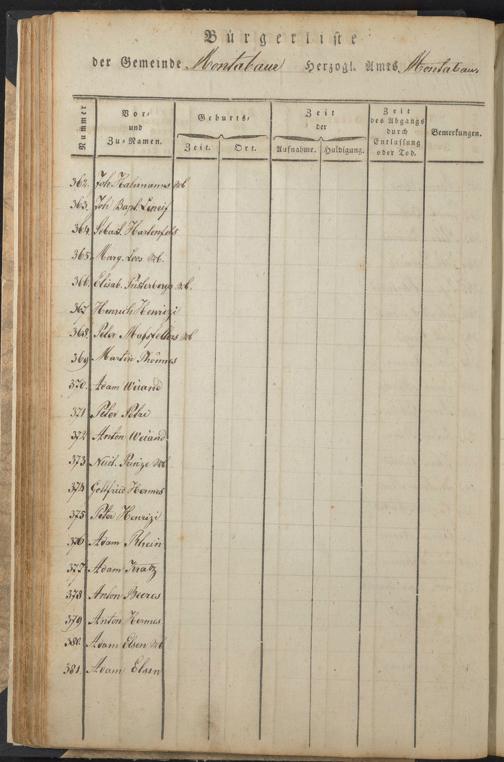 Bürgerliste
der Gemeinde Montabaur Herzogl. Amts Montabaur
Nummer
Vor- und Zu-Namen.
Geburts-
Zeit. Ort.
Zeit der
Aufnahme. Huldigung.
Zeit des Abgangs durch Entlassung oder Tod.
Bemerkungen.
362. Joh. Hahnmanns Wb
363. Joh Bapt.
364. Sebast. Hartenfels
365. Marg. Loos Wb.
366. Elisab. Wb.
367. Henrich Henrizi
368. Peter Wb
369 Martin Thönnes
370. Adam Weiand
371 Peter
372 Anton Weiand
373 Wb
374 Gottfried Hermes
375 Peter Henrizi
376 Adam Rhein
377 Adam Kratz
378 Anton Beeres
379 Anton Hermes
380. Adam Elsen Wb
381. Adam Elsen